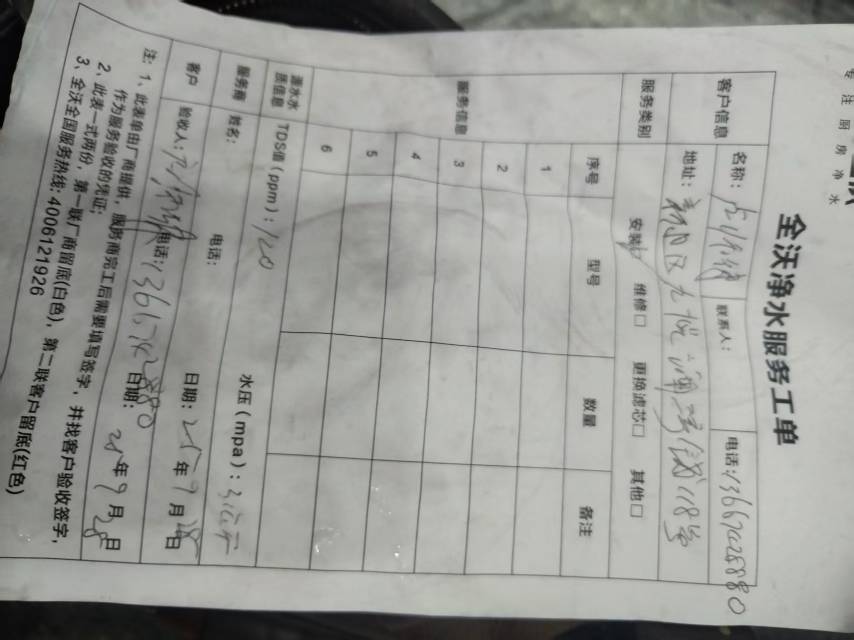 专注厨房净水
全沃净水服务工单
客户信息 名称: 联系人: 电话: 13667028880
地址: 新建区 118号
服务类别 安装 维修□ 更换滤芯□ 其他□
服务信息 序号 型号 数量 备注
1
2
3
4
5
6
源水水质信息 TDS值(ppm): 120 水压(mpa): 3公斤
服务商 姓名: 电话: 日期: 25年9月28日
客户 验收人: 电话: 13667028880 日期: 25年9月28日
注: 1、此表单由厂商提供, 服务商完工后需要填写签字, 并找客户验收签字,
作为服务验收的凭证;
2、此表一式两份, 第一联厂商留底(白色), 第二联客户留底(红色)
3、全沃全国服务热线: 4006121926